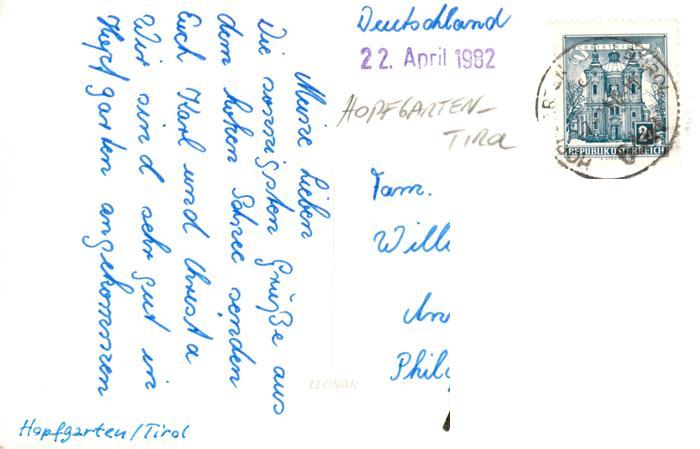 Meine Lieben
Die sonnigsten Grüße aus
dem hohen Schnee senden
Euch Karl und Christa
Wir sind sehr gut in
Hopfgarten angekommen
Hopfgarten/Tirol
Deutschland
22. April 1982
HOPFGARTEN-
TIROL
Fam.
Will
An
Phil
LEONAR
CHRISTKINDL
2
REPUBLIK ÖSTERREICH